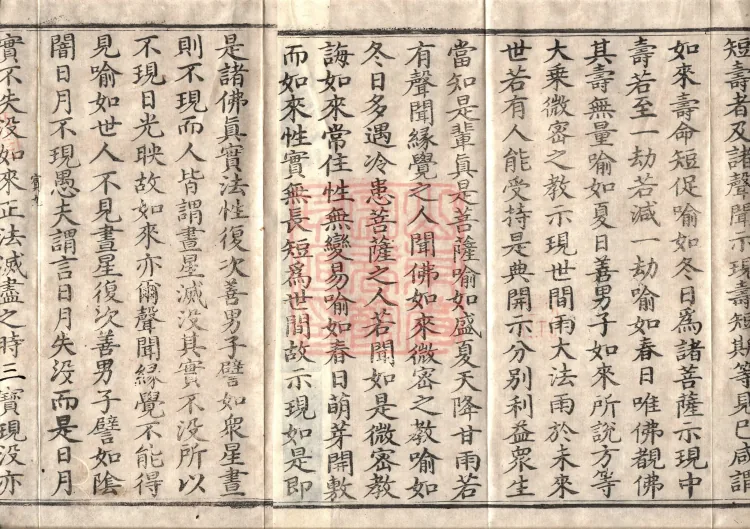 短壽者及諸聲聞示現壽短斯等見已咸謂
如來壽命短促喻如冬日爲諸菩薩示現中
壽若至一劫若減一劫喻如春日唯佛覩佛
其壽無量喻如夏日善男子如來所說方等
大乗微密之教示現世間雨大法雨於未來
世若有人能受持是典開示分別利益衆生
當知是輩眞是菩薩喻如盛夏天降甘雨若
有聲聞緣覺之人聞佛如來微密之教喻如
冬日多遇冷患菩薩之人若聞如是微密教
誨如來常住性無變易喻如春日萌芽開敷
而如來性實無長短爲世間故示現如是即
是諸佛眞實法性復次善男子譬如衆星晝
則不現而人皆謂晝星滅没其實不没所以
不現日光映故如來亦爾聲聞緣覺不能得
見喻如世人不見晝星復次善男子譬如陰
闇日月不現愚夫謂言日月失没而是日月
實不失没如來正法滅盡之時三寶現没亦